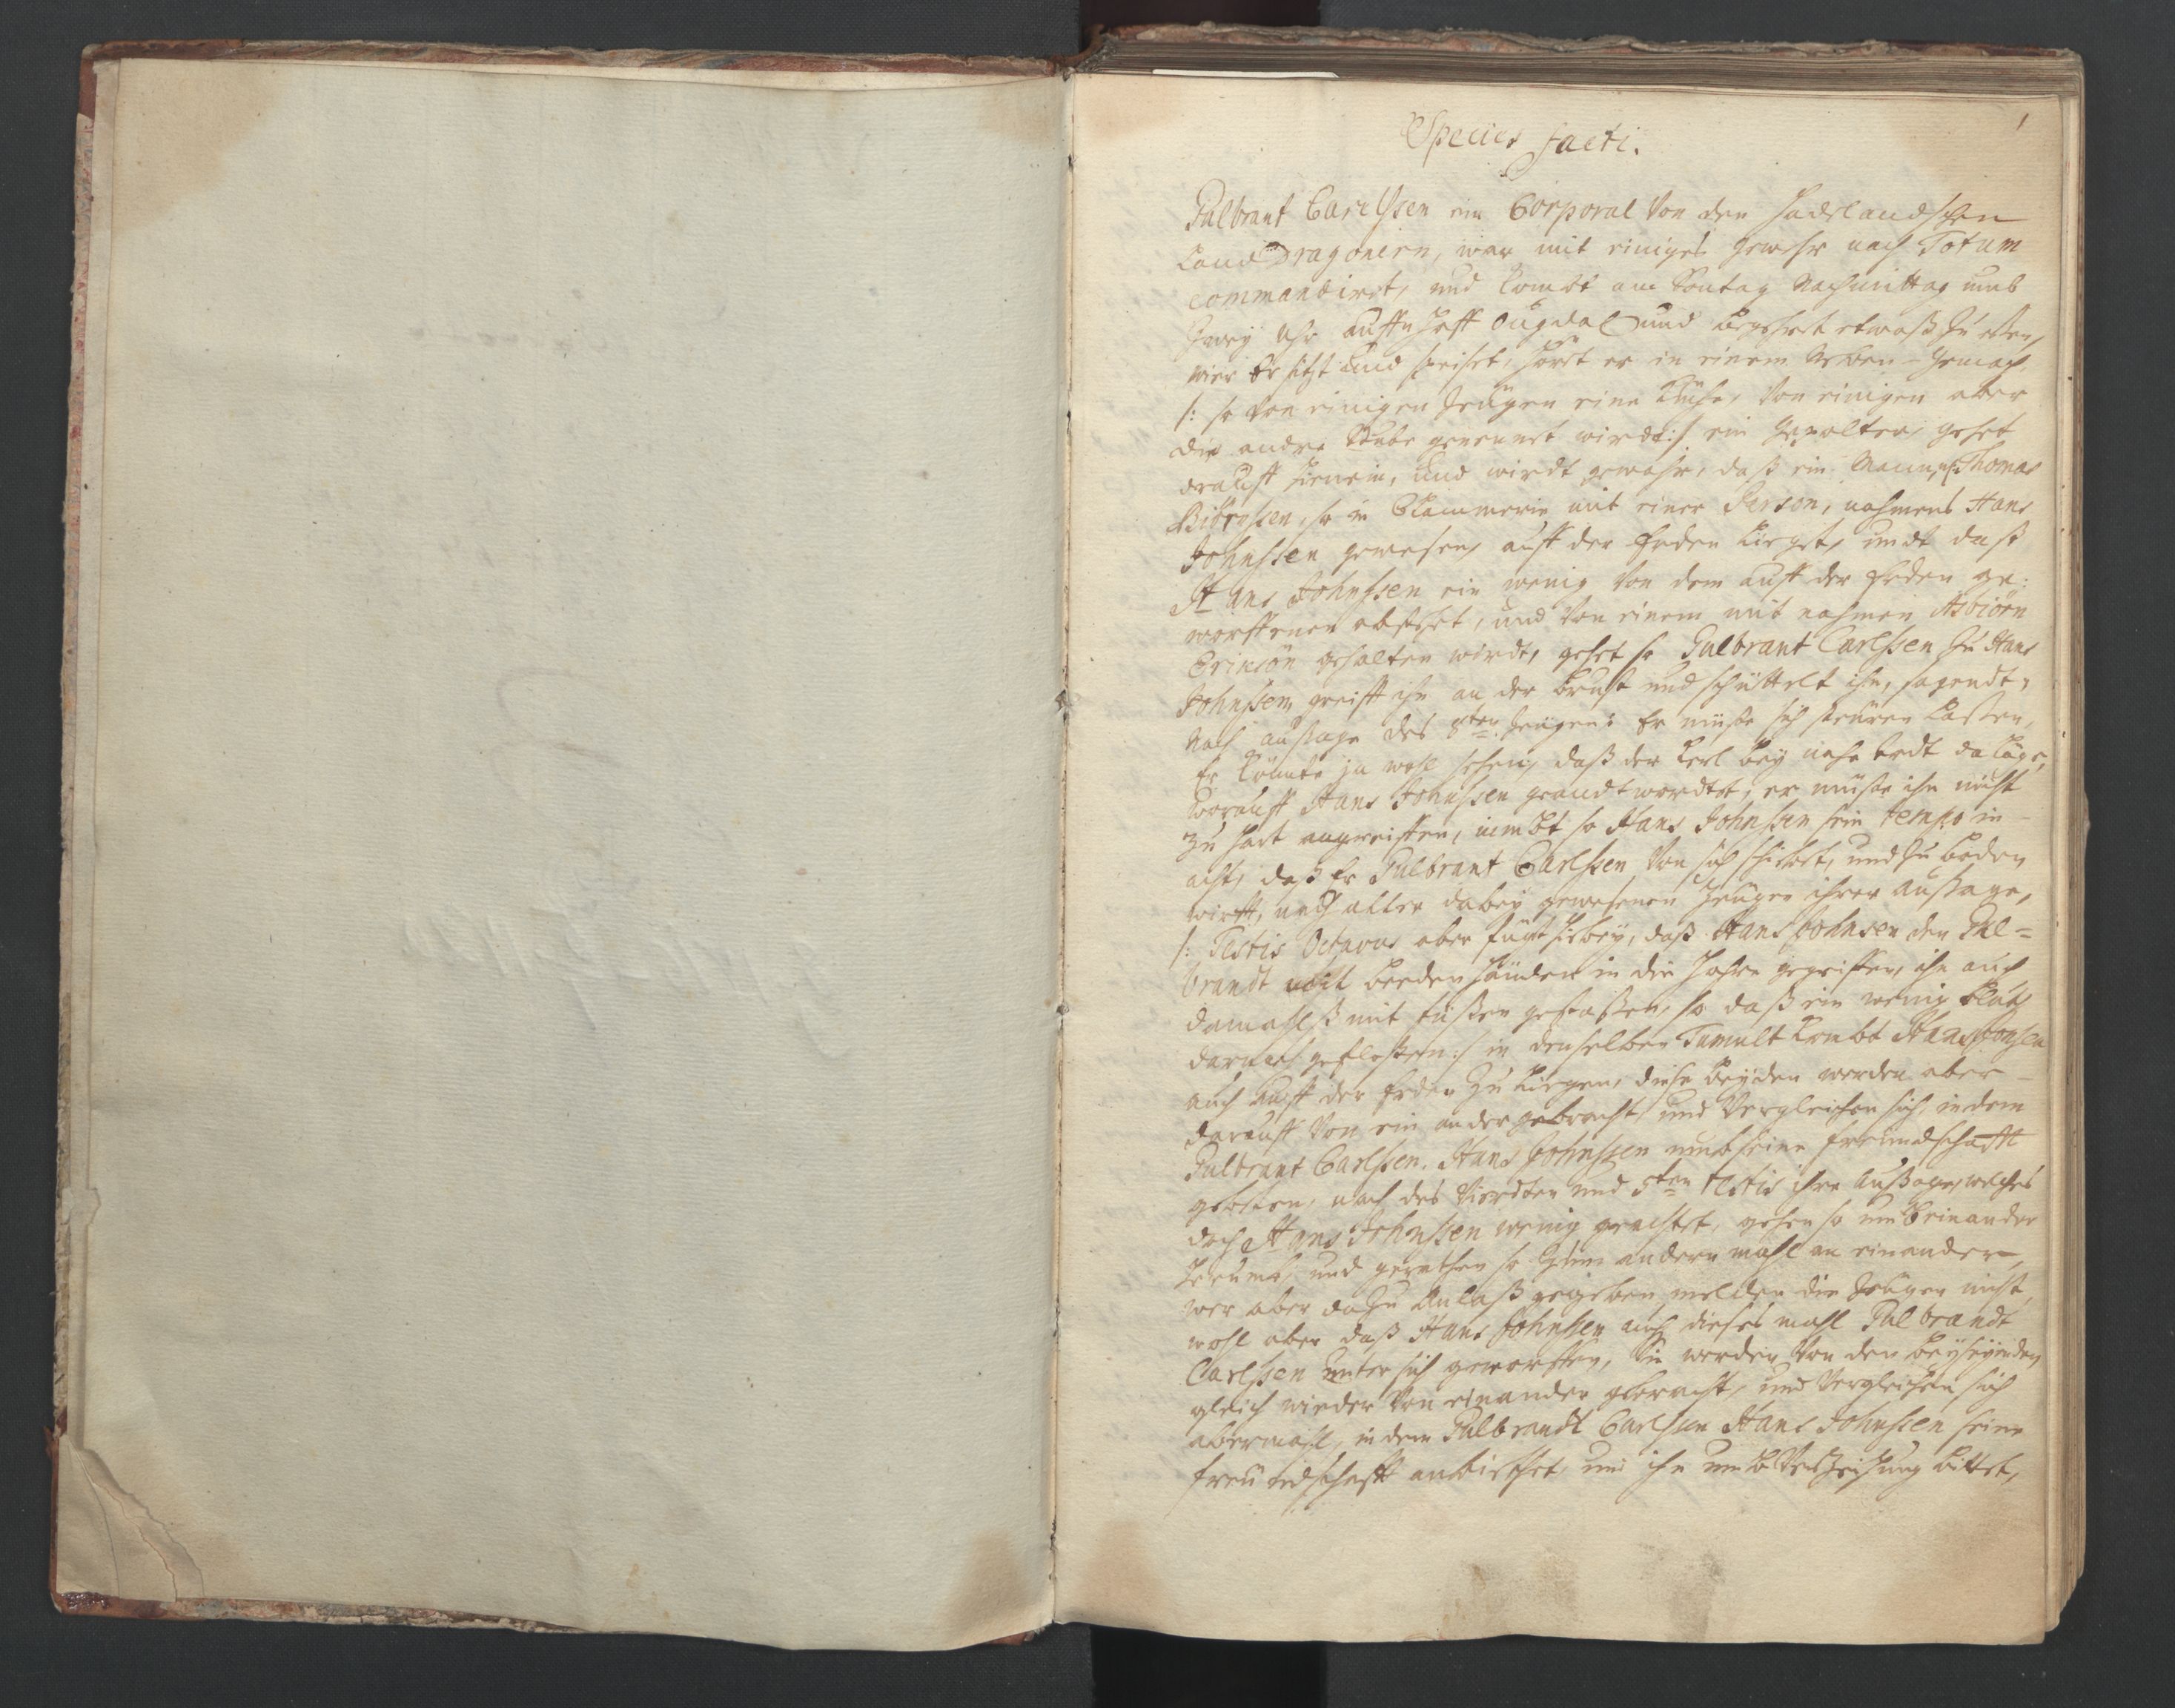 1
Species facti.
Gulbrant Carlssen ein Corporal von den Hadelandschen
Land Dragonern, war mit einiges gewehr nach Totum
commandiret, und kombt am Sontag Nachmittag umb
Zwey Uhr auff'n Hoff Ougdal und begehret etwaß zu eßen,
wier Er sitzt und speiset, höret er in einem Neben-Gemach,
/: so von einigen Zeugen eine Küche, von einigen aber
die andre Stube genennet wirdt :/ ein gepolter, gehet
drauff hienein, und wirdt gewahr, daß ein Nammens Thomas
Biörnssen, so in Clammerie mit einer Person, nahmens Hans
Johnssen gewesen, auff der Erden lieget, undt daß
Hans Johnssen ein wenig von dem auff der Erden ge:
worffenen abstehet, und von einem mit nahmen Asbiörn
Ericsön gehalten wirdt, gehet so Gulbrant Carlssen zu Hans
Johnssen, greifft ihn an der Brust und schüttelt ihn, sagendt,
Nach außage des 8ten Zeugen: Er müste sich steüren laßen,
Er könnte ja wohl sehen, daß der Kerl bey nahe todt da läge,
Worauff Hans Johnssen geandtwordtet, er müste ihn nicht
zu hart angreiffen, nimbt so Hans Johnssen sein tempo in
acht, daß Er Gulbrant Carlssen von sich schiebet, und zu boden
wirfft, nach aller dabey gewesenen Zeugen ihrer Außage,
/: Testis Octavus aber füget hiebey, daß Hans Johnsen den Gul=
brandt mit beeden Händen in die Haare gegriffen, ihn auch
damahlß mit füßen gestoßen, so daß ein wenig bluht
darnach gefloßen :/ in denselben Tumult kombt Hans Jonsen
auch auff der Erden zu liegen, diese beyden werden aber
darauff von ein ander gebracht und vergleichen sich, indem
Gulbrant Carlssen Hans Johnssen umb seine freundschafft
gebeten, nach des vierdten und 5ten testis ihre Außage, welches
doch Hans Johnssen wenig geachtet, gehen so umb einander
herumb, und gerathen so zum andern mahl an einander,
wer aber dazu Anlaß gegeben, melden die Zeugen nicht,
wohl aber daß Hans Johnssen auch dieses mahl Gulbrandt
Carlssen unter sich geworffen, Sie werden von den beyseyenden
gleich wieder von einander gebracht, und vergleichen sich
abermahl, in dem Gulbrandt Carlssen Hans Johnssen seine
freundschafft anbiethet, und ihn umb Verzeihung bittet,